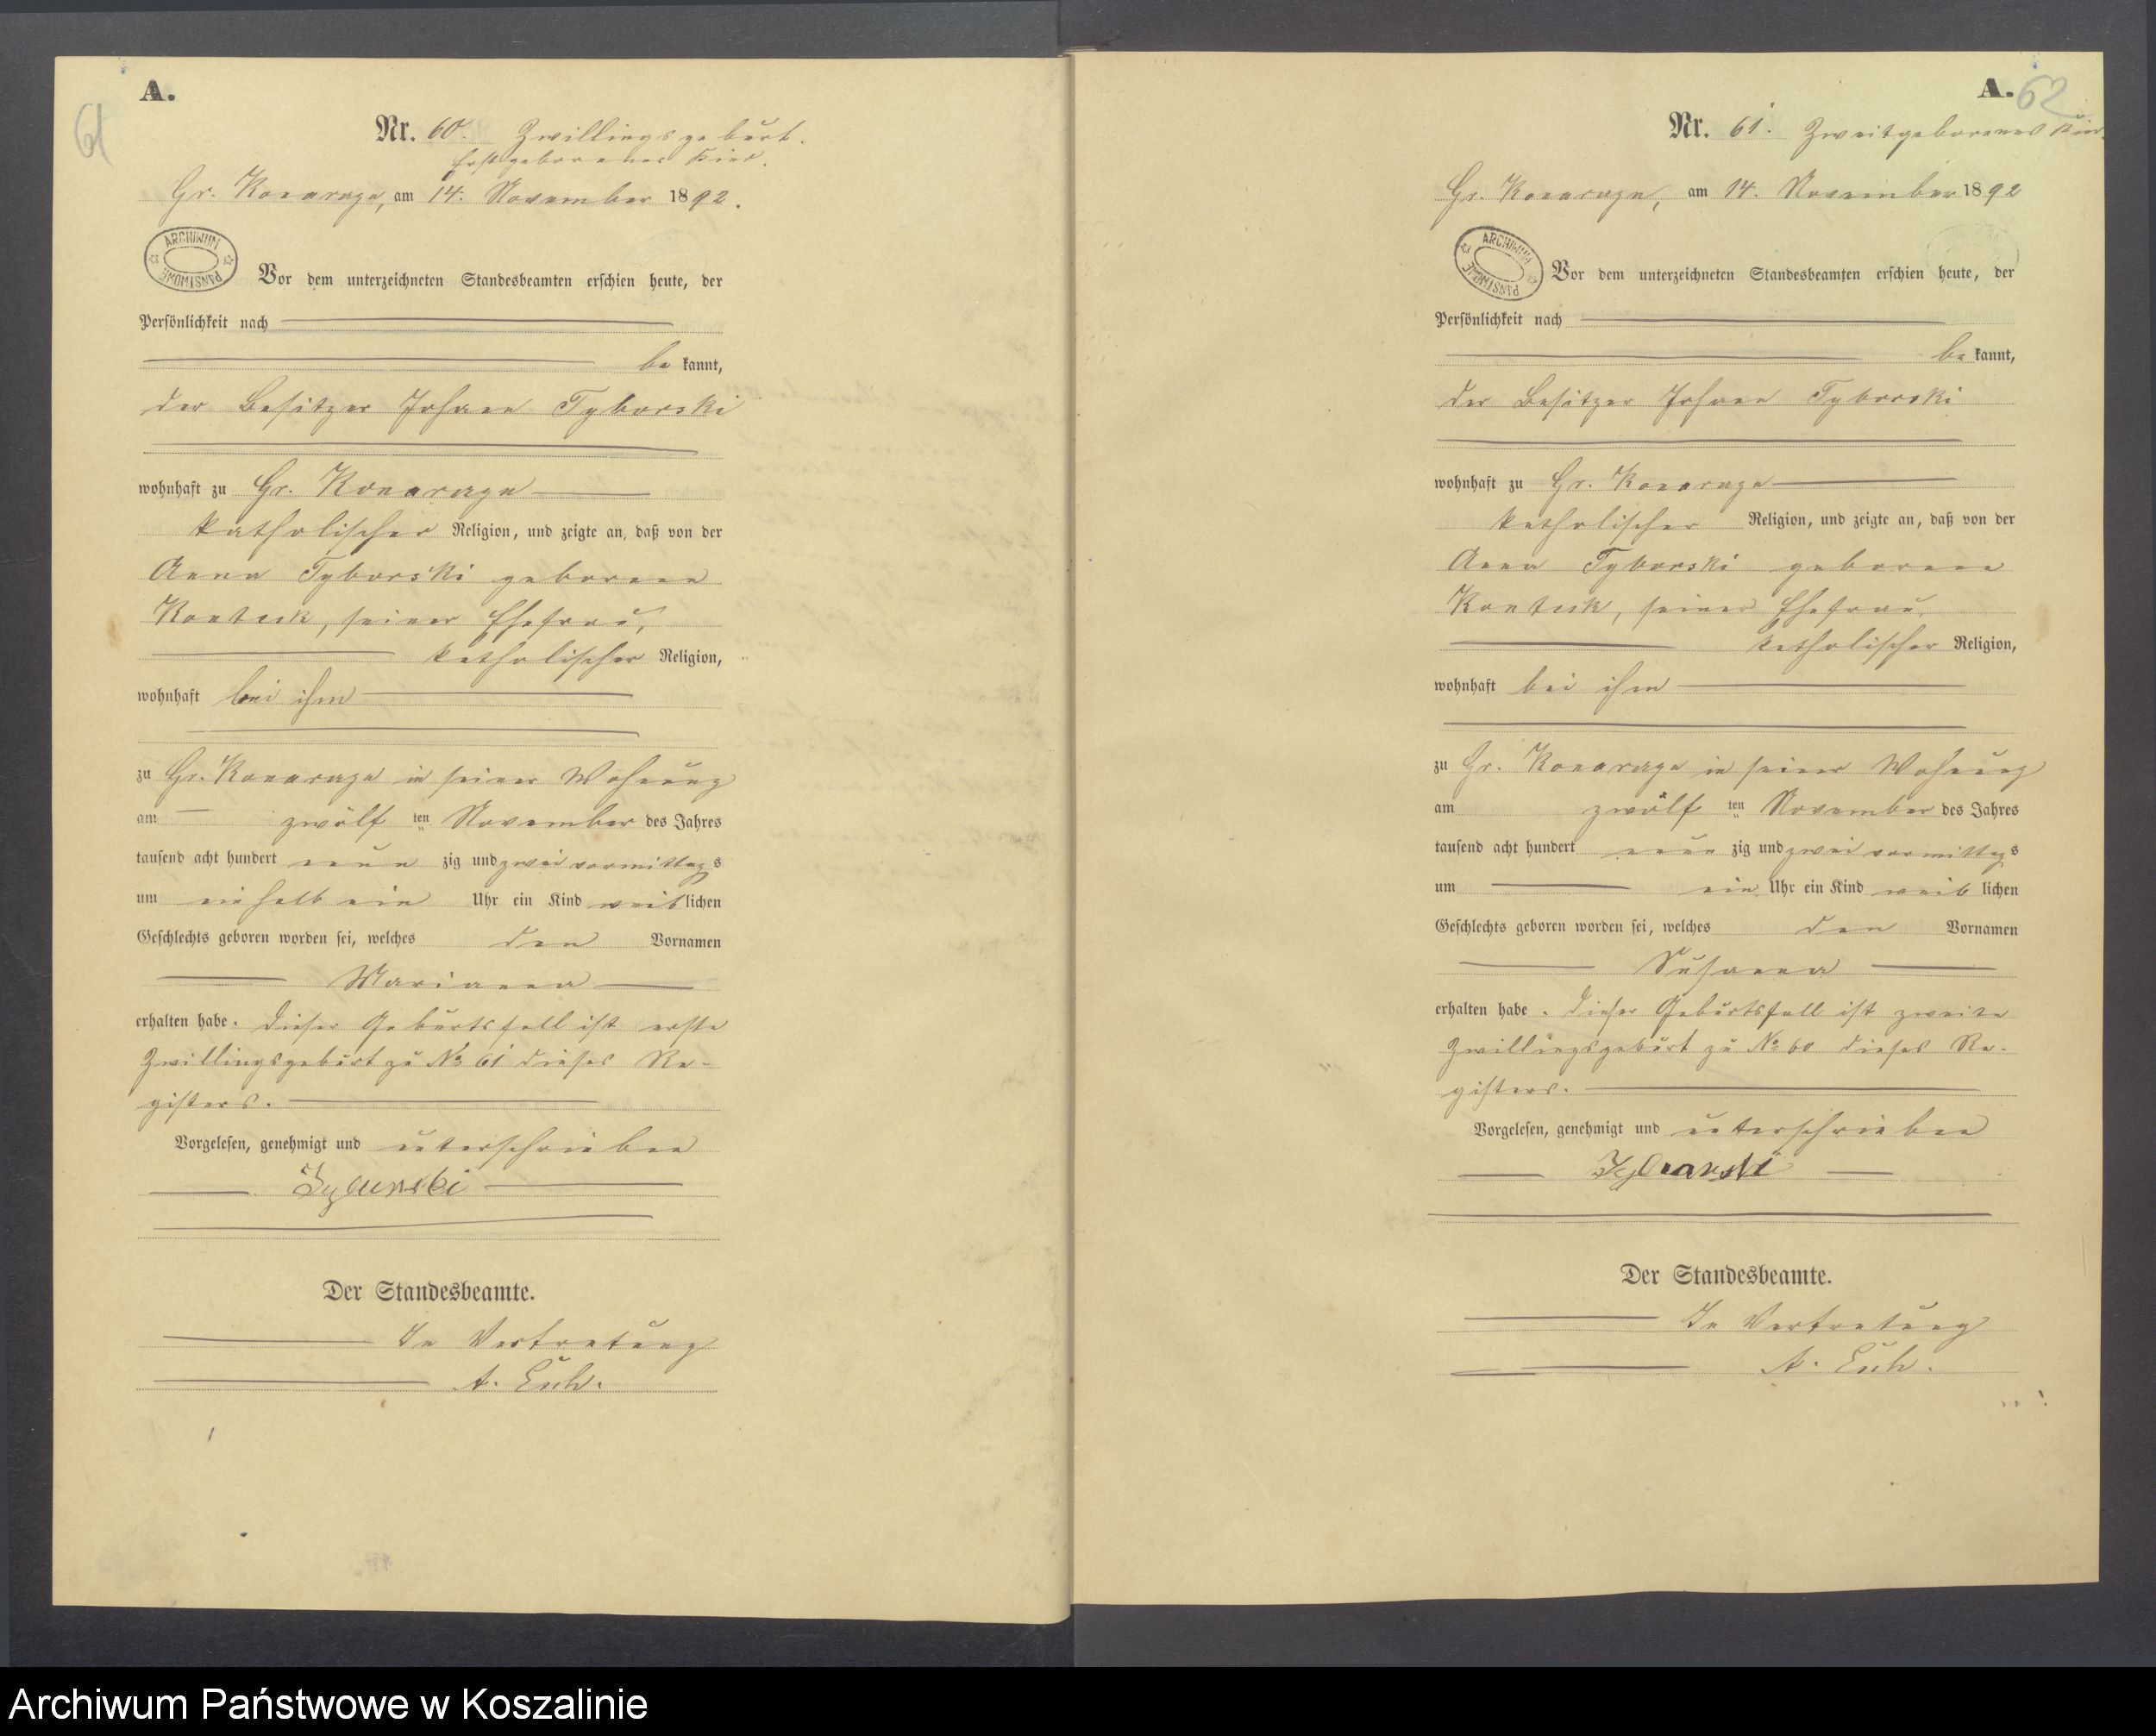 A.
61
Nr. 60. Zwillingsgeburt.
Erstgeborenes Kind.
Gr. Konarczyn, am 14. November 1892.
ARCHIWUM PAŃSTWOWE
Vor dem unterzeichneten Standesbeamten erschien heute, der
Persönlichkeit nach
be kannt,
der Besitzer Johann Tyborski
wohnhaft zu Gr. Konarczyn
katholischer Religion, und zeigte an, daß von der
Anna Tyborski geborenen
seiner Ehefrau,
katholischer Religion,
wohnhaft bei ihm
zu Gr. Konarczyn in seiner Wohnung
am zwölf ten November des Jahres
tausend acht hundert neun zig und zwei vormittags
um einhalb ein Uhr ein Kind weiblichen
Geschlechts geboren worden sei, welches den Vornamen
Marianna
erhalten habe. Dieser Geburtsfall ist erste
Zwillingsgeburt zu No 61 dieses Re-
gisters.
Vorgelesen, genehmigt und unterschrieben
Tyborski
Der Standesbeamte.
In Vertretung
A.
A. 62
Nr. 61. Zweitgeborenes Kind
Gr. Konarczyn, am 14. November 1892
ARCHIWUM PAŃSTWOWE
Vor dem unterzeichneten Standesbeamten erschien heute, der
Persönlichkeit nach
be kannt,
der Besitzer Johann Tyborski
wohnhaft zu Gr. Konarczyn
katholischer Religion, und zeigte an, daß von der
Anna Tyborski geborenen
seiner Ehefrau,
katholischer Religion,
wohnhaft bei ihm
zu Gr. Konarczyn in seiner Wohnung
am zwölf ten November des Jahres
tausend acht hundert neun zig und zwei vormittags
um ein Uhr ein Kind weib lichen
Geschlechts geboren worden sei, welches den Vornamen
Susanna
erhalten habe. Dieser Geburtsfall ist zweite
Zwillingsgeburt zu No 60 dieses Re-
gisters.
Vorgelesen, genehmigt und unterschrieben
Tyborski
Der Standesbeamte.
In Vertretung
A.
Archiwum Państwowe w Koszalinie